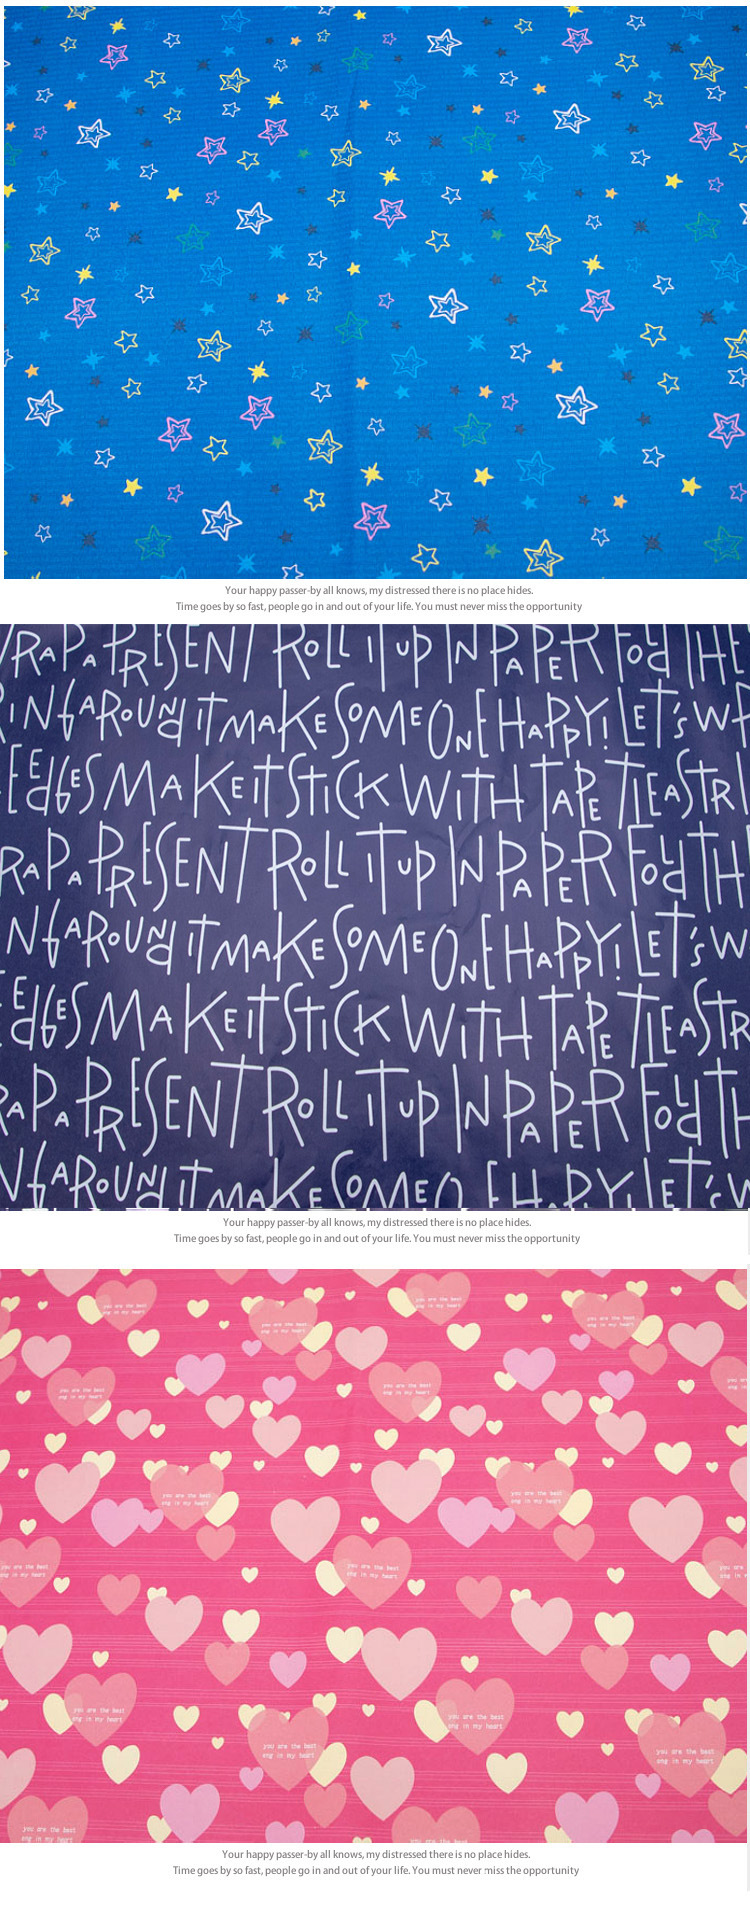 Your happy passer-by all knows, my distressed there is no place hides.
Time goes by so fast, people go in and out of your life. You must never miss the opportunity
RAP A PRESENT ROLL IT UP IN PAPER FOLD THE
RING AROUND IT MAKE SOMEONE HAPPY! LET'S WR
EDGES MAKE IT STICK WITH TAPE TIE A STRI
RAP A PRESENT ROLL IT UP IN PAPER FOLD TH
NG AROUND IT MAKE SOMEONE HAPPY! LET'S W
EDGES MAKE IT STICK WITH TAPE TIE A STR
RAP A PRESENT ROLL IT UP IN PAPER FOLD TH
NG AROUND IT MAKE SOMEONE HAPPY! LET'S W
Your happy passer-by all knows, my distressed there is no place hides.
Time goes by so fast, people go in and out of your life. You must never miss the opportunity
you are the best
ong in my heart
you are the best
ong in my heart
you are the best
ong in my heart
you are the best
ong in my heart
you are the best
ong in my heart
you are the best
ong in my heart
you are the best
ong in my heart
you are the best
ong in my heart
you are the best
ong in my heart
you are the best
ong in my heart
you are the best
ong in my heart
you are the best
ong in my heart
you are the best
ong in my heart
you are the best
ong in my heart
you are the best
ong in my heart
Your happy passer-by all knows, my distressed there is no place hides.
Time goes by so fast, people go in and out of your life. You must never miss the opportunity